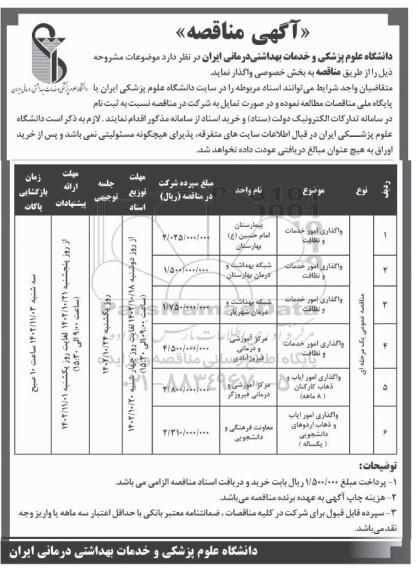 «آگهی مناقصه»
دانشگاه علوم پزشکی و خدمات بهداشتی درمانی ایران
دانشگاه علوم پزشکی و خدمات بهداشتی‌درمانی ایران در نظر دارد موضوعات مشروحه
ذیل را از طریق مناقصه به بخش خصوصی واگذار نماید.
متقاضیان واجد شرایط می‌توانند اسناد مربوطه را در سایت دانشگاه علوم پزشکی ایران یا
پایگاه ملی مناقصات مطالعه نموده و در صورت تمایل به شرکت در مناقصه نسبت به ثبت نام
در سامانه تدارکات الکترونیک دولت (ستاد) و خرید اسناد از سامانه مذکور اقدام نمایند. لازم به ذکر است دانشگاه
علوم پزشکی ایران در قبال اطلاعات سایت های متفرقه، پذیرای هیچگونه مسئولیتی نمی باشد و پس از خرید
اوراق به هیچ عنوان مبالغ دریافتی عودت داده نخواهد شد.
ردیف نوع موضوع نام واحد مبلغ سپرده شرکت در مناقصه (ریال) مهلت توزیع اسناد جلسه توجیهی مهلت ارائه پیشنهادات زمان بازگشایی پاکات
مناقصه عمومی یک مرحله ای
۱ واگذاری امور خدمات و نظافت بیمارستان امام حسین (ع) بهارستان ۴/۰۳۵/۰۰۰/۰۰۰
۲ واگذاری امور خدمات و نظافت شبکه بهداشت و درمان بهارستان ۱/۵۰۰/۰۰۰/۰۰۰
۳ واگذاری امور خدمات و نظافت شبکه بهداشت و درمان شهریار ۱/۷۵۰/۰۰۰/۰۰۰
۴ واگذاری امور خدمات و نظافت مرکز آموزشی و درمانی فیروزآبادی ۴/۵۰۰/۰۰۰/۰۰۰
۵ واگذاری امور ایاب و ذهاب کارکنان (۸ ماهه) مرکز آموزشی و درمانی فیروزگر ۳/۸۰۰/۰۰۰/۰۰۰
۶ واگذاری امور ایاب و ذهاب اردوهای دانشجویی (یکساله) معاونت فرهنگی و دانشجویی ۲/۳۱۰/۰۰۰/۰۰۰
از روز دوشنبه ۱۴۰۲/۱۰/۱۸ لغایت روز چهارشنبه ۱۴۰۲/۱۰/۲۰
(ساعت ۹:۰۰ الی ۱۵:۳۰)
روز یکشنبه ۱۴۰۲/۱۰/۲۴
از روز پنجشنبه ۱۴۰۲/۱۰/۲۱ لغایت روز یکشنبه ۱۴۰۲/۱۱/۰۱
(ساعت ۹:۰۰ الی ۱۵:۳۰)
سه شنبه ۱۴۰۲/۱۱/۰۳ ساعت ۱۰ صبح
ParsNamadData
۰۲۱-۸۸۳۴۹۶۷۰-۵
توضیحات:
۱- پرداخت مبلغ ۱/۵۰۰/۰۰۰ ریال بابت خرید و دریافت اسناد مناقصه الزامی می باشد.
۲- هزینه چاپ آگهی به عهده برنده مناقصه می‌باشد.
۳- سپرده قابل قبول برای شرکت در کلیه مناقصات ، ضمانتنامه معتبر بانکی با حداقل اعتبار سه ماهه یا واریز وجه
نقد می‌باشد.
دانشگاه علوم پزشکی و خدمات بهداشتی درمانی ایران